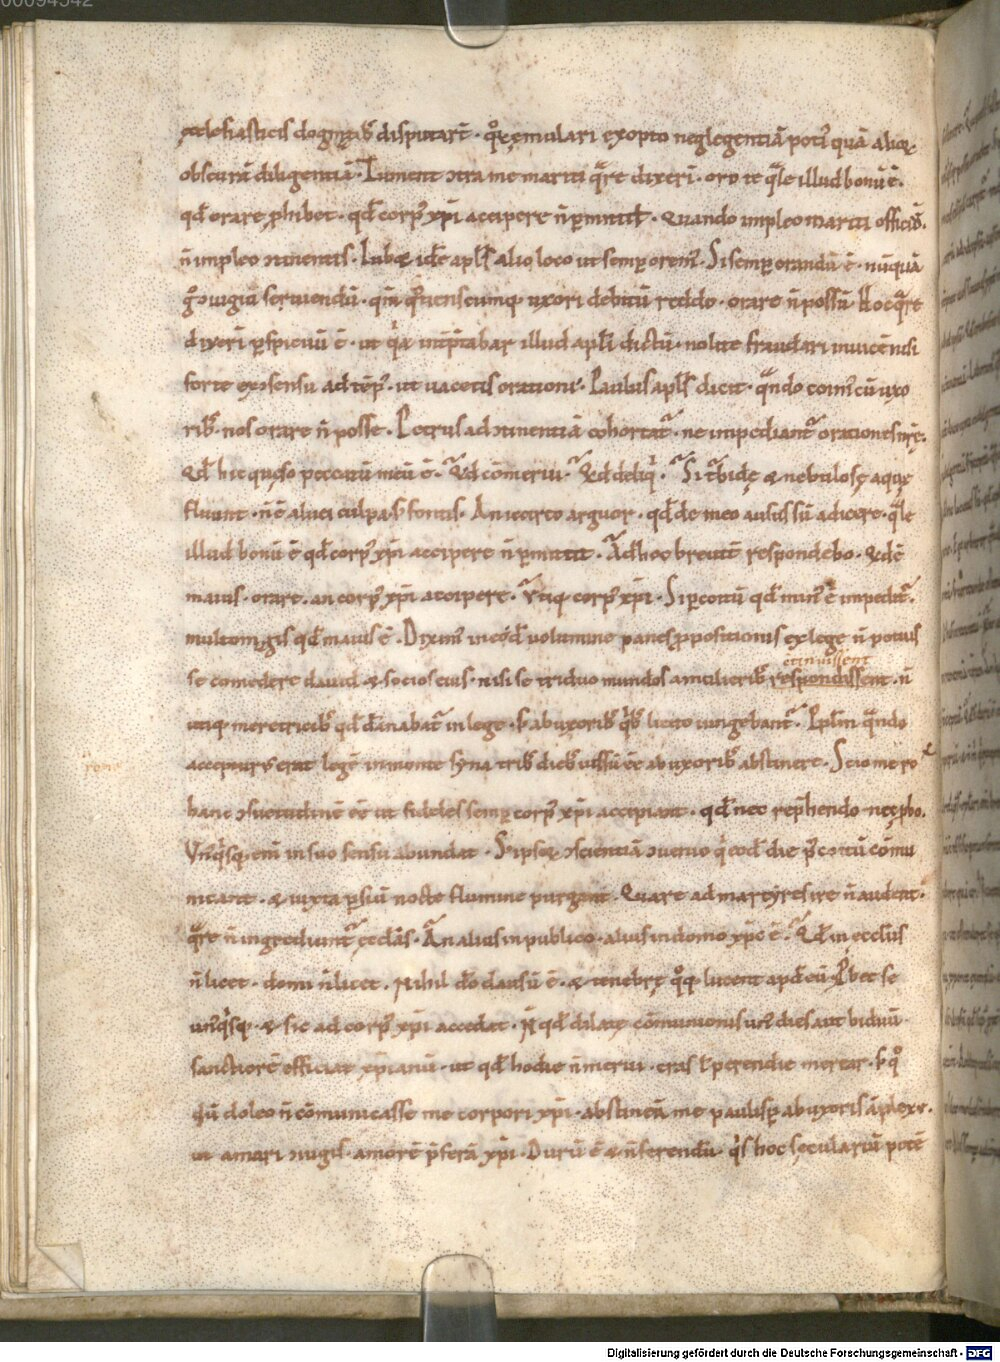 00094342
ęcclesiasticis dogmatib; disputarē · q̊ꝝ ęmulari exopto neglegentiā poti᾽ quā alioꝝ
obscurā diligentiā · Tument ɔtra me mariti q̄re dixerī · oro te q̄le illud bonū ē ·
qd̄ orare ꝓhibet · qd̄ corp᾽ xp̄i accipere n̄ ꝑmittit · Quando impleo mariti officiū ·
n̄ impleo ɔtinentis · Iubet idē apl̄s alio loco ut semꝑ orem᾽ · Si semꝑ orandū ē · nūquā
g̊ ɔiugiū seruiendū · qm̄ q̊tienscumq; uxori debitū reddo · orare n̄ possū · Hoc q̄re
dixerī ꝑspicuū ē · ut q̇a int̄p̄tabar illud apl̄i dictū · nolite fraudari inuicē nisi
forte ex ɔsensu ad tēp᾽ · ut uacetis orationi · Paulus apl̄s dicit · q̄ndo coim᾽ cū uxo
rib; · nos orare n̄ posse · Petrus ad ɔtinentiā cohortat᾽ · ne impediant᾽ orationes nr̄ę ·
Qd̄ hic quęso peccatū meū ē · Qd cōmerui · Qd deliq̇ · Si t᾽bidę & nebulosę aquę
fluunt · n̄ ē aluei culpa · s; fontis · An iccirco arguor · qd̄ de meo ausus sū adicere · q̄le
illud bonū ē qd̄ corp᾽ xp̄i accipere n̄ ꝑmittit · Ad hoc breuit̄ respondebo · Qd ē
maius · orare · an corp᾽ xp̄i accipere · Vtiq; corp᾽ xp̄i · Si ꝑ coitū qd̄ min᾽ ē impedit᾽ ·
multo magis qd̄ maius ē · Dixim᾽ in eōd̄ uolumine panes ꝓpositionis ex lege n̄ potuis
se comedere dauid & socios eius · nisi se triduo mundos a mulierib; respondissent · n̄
ctinuissent
utiq; meretricib; qd̄ dānabat᾽ in lege · s; ab uxorib; q̇b; licito iungebant᾽ · Ppl̄m q̄ndo
accepturus erat legē in monte syna trib; dieb; iussū ēē ab uxorib; abstinere · Scio me ro
romę
hanc ɔsuetudinē ēē ut fideles semꝑ corp᾽ xp̄i accipiant · qd̄ nec rep̄hendo nec ꝓbo ·
Vn᾽q̇sq; enī in suo sensu abundat · S; ipsoꝝ ɔscientiā ɔuenio q̇ eod̄ die p᾽ coitū cōmu
nicant · & iuxta ꝑsiū nocte flumine purgant · Quare ad martyres ire n̄ audent ·
q̄re n̄ ingrediunt᾽ ęcclās · An alius in publico · alius in domo xp̄c ē · Qd̄ in ęcclīis
n̄ licet · domi n̄ licet · Nihil dō clausū ē · & tenebrę q̊q; lucent apd̄ eū · Ꝓbet se
un᾽q̇sq; · & sic ad corp᾽ xp̄i accedat · N̄ qd̄ dilatę cōmunionis un᾽ dies aut biduū
sanctiorē efficiat xp̄ianū · ut qd̄ hodie n̄ merui · cras ł perendie merear · s; q̊
dū doleo n̄ cōmunicasse me corpori xp̄i · abstineā me paulisꝑ ab uxoris āplexu ·
ut amori ɔiugis · amorē p̄ferā xp̄i · Durū ē & n̄ ferendū · q̇s hoc sęculariū potē
Digitalisierung gefördert durch die Deutsche Forschungsgemeinschaft - DFG